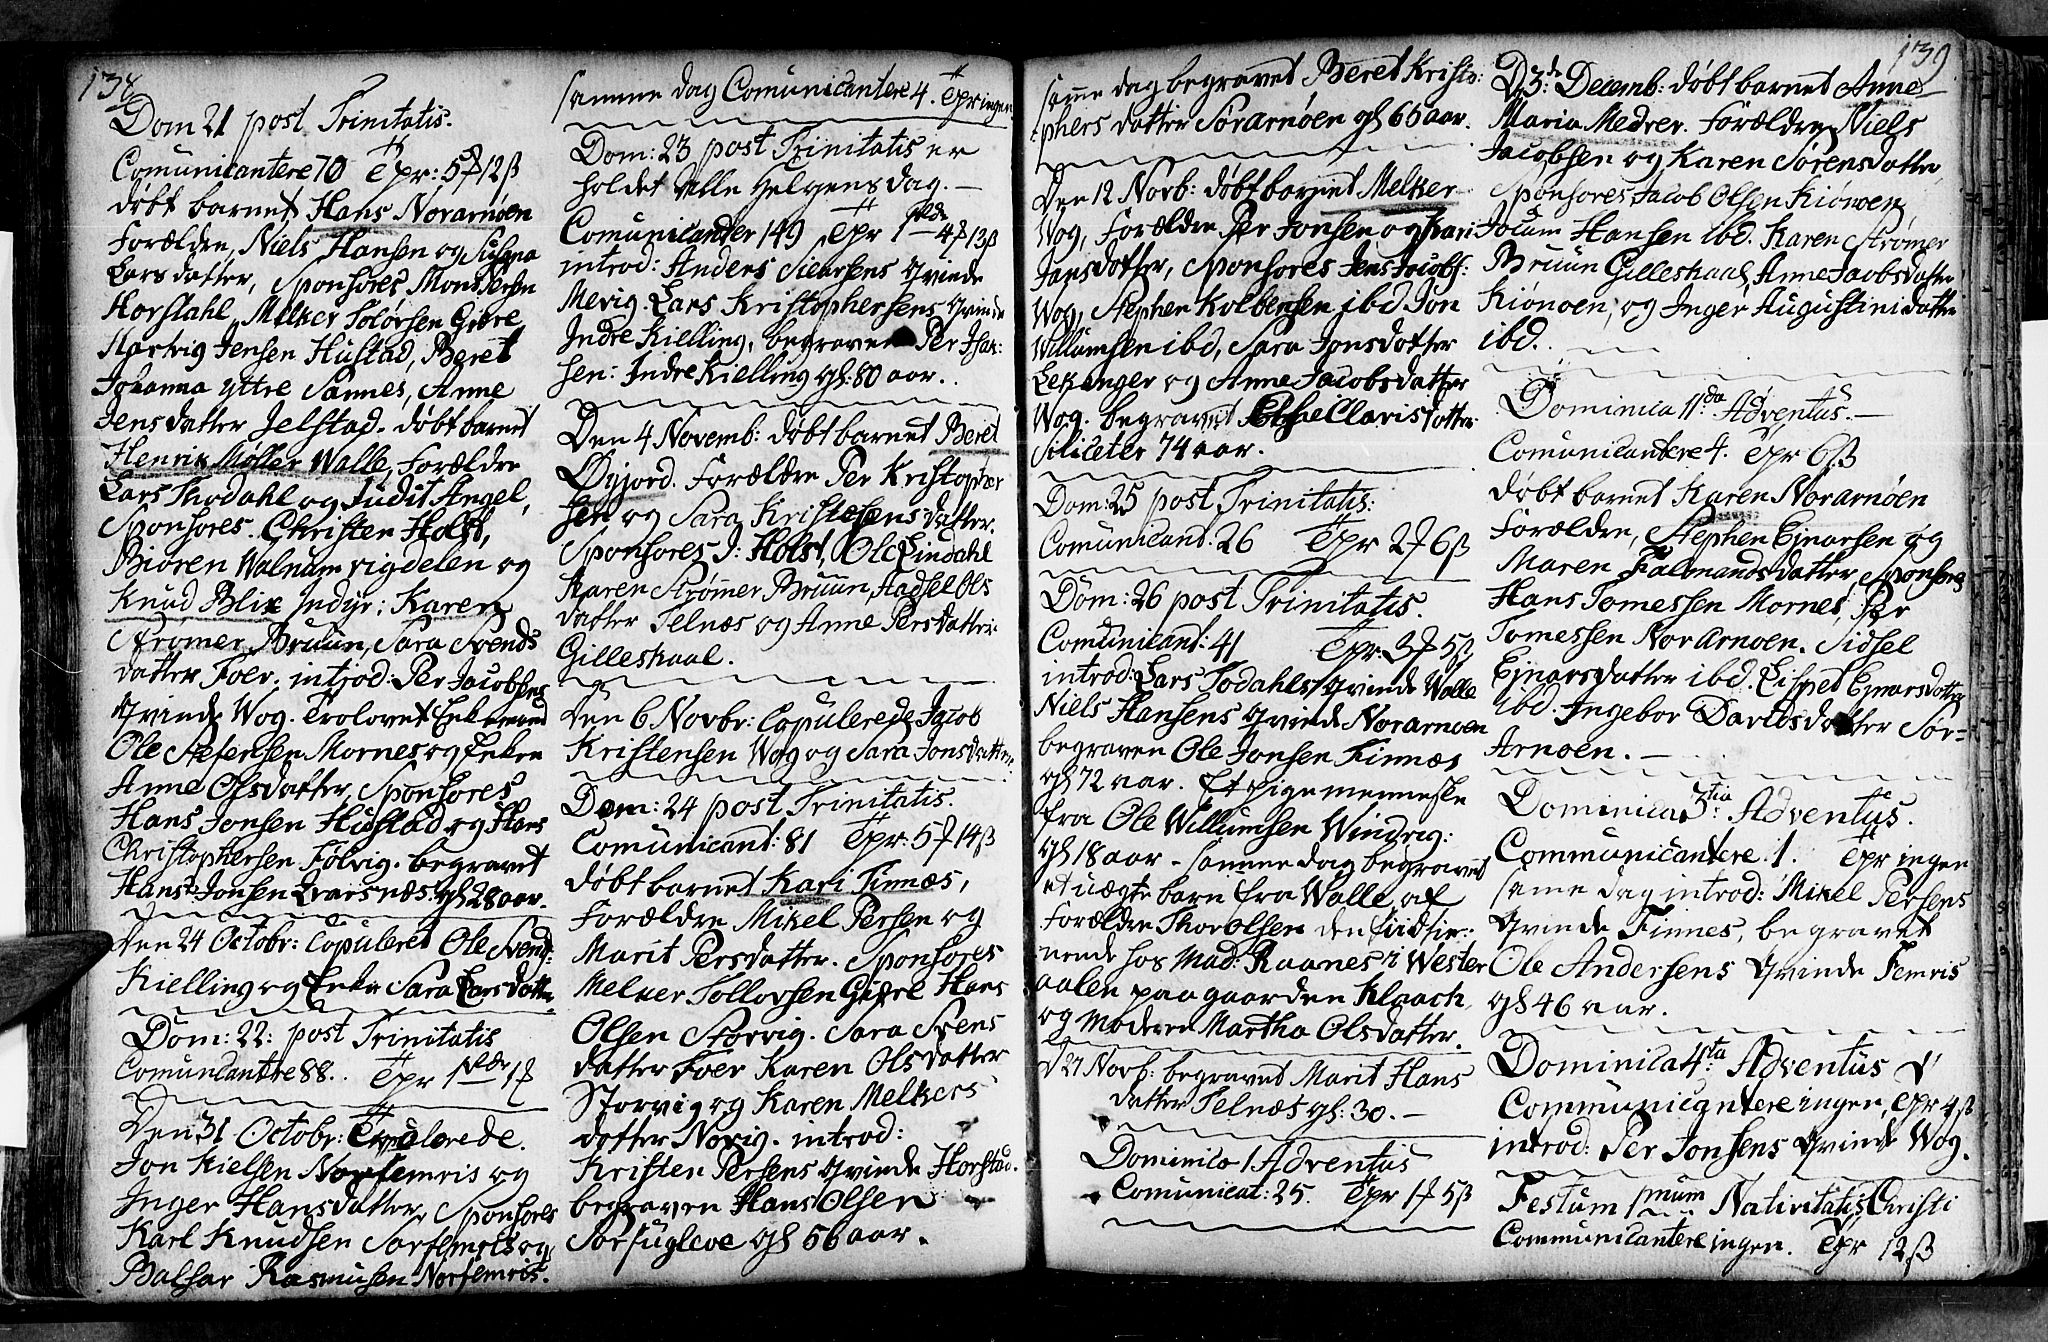 138
Dom 21 post Trinitatis.
Comunicantere 70 Tpr: 5 12ß
døbt barnet Hans Norarnøen
Forældre, Niels Hansen og Susana
Larsdatter, Sponsores Mons Persen
Horstahl, Melker Solørsen Gidre
Hartvig Jensen Hustad, Beret
Johanna yttre Sannes, Anne
Jensdatter Jelstad. døbt barnet
Henrik Møller Walle, Forældre
Lars Thodahl og Judit Angel,
Sponsores. Christen Holst,
Biören Walnum rigdelen og
Knud Blix Indyr; Karen
Strømer Bruun, Sara Svends
datter Foer. introd: Per Jacobsens
qvinde Wog. Trolovet Enkemand
Ole Stefensen Mornes og Enken
Anne Olsdatter, Sponsores
Hans Jonsen Hustad og Hans
Christophersen Fölvig. begravet
Hans Jonsen Evarsnæs. gl 28 aar.
Den 24 Octobr: Copuleret Ole Svend:
Kielling og Enke Sara Larsdatter
Dom: 22: post Trinitatis
Comunicantere 88. Tpr 1 1
Den 31 Octobr: Copulerede
Jon Kielsen Norfemris og
Inger Hansdatter, Sponsores
Karl Knudsen Sorfemris og
Balsar Rasmusen Norfemris.
samme dag Comunicantere 4. Tpr ingen
Dom: 23 post Trinitatis er
holdet Alle Helgens dag. —
Comunicander 149 Tpr 1 4 13ß
introd: Anders Sicersens qvinde
Mevig Lars Kristophersens qvinde
Indre Kielling, begraven Per Isak:
sen: Indre Kielling gl: 80 aar.
Den 4 Novemb: døbt barnet Beret
Øyjord. Forældre Per Kristopher
sen og Sara Kristensens datter.
Sponsores J: Holst, Ole Lindahl
Karen Strømer Bruun, Aadsel Ols
datter Telnæs og Anne Persdatter
Gilleskaal.
Den 6 Novbr: Copulerede Jacob
Kristensen Wog og Sara Jonsdatter.
Dom: 24 post Trinitatis.
Comunicant: 81 Tpr: 5 14ß
døbt barnet Kari Finnæs,
Forældre Mikel Persen og
Marit Persdatter. Sponsores
Melker Tollovsen Gidre Hans
Olsen Storvig. Sara Svens
datter Foer Karen Olsdatter
Storvig og Karen Melkers
datter Norig. introd:
Kristen Persens qvinde Horstad.
begraven Hans Olsen
Sorfugleve gl 56 aar.
139
same dag begravet Beret Kristo:
phers datter Sörarnøen gl 66 aar.
Den 12 Novb: døbt barnet Melker
Wog, Forældre Per Jonsen og Kari
Jansdatter, Sponsores Jens Jacobs:
Wog, Stephen Kolbensen ibd Jon
Willumsen ibd, Sara Jonsdatter
Lekanger og Anne Jacobsdatter
Wog. begravet Clavisdatter
Seliceter 74 aar.
Dom: 25 post Trinitatis:
Comunicand. 26 Tpr 2 6ß
Dom: 26 post Trinitatis.
Comunicant: 41 Tpr: 3 5ß
introd: Lars Todahls qvinde Walle
Niels Hansens qvinde Norarnoen
begraven Ole Jonsen Finnæs
gl 72 aar. Et pigemenneske
fra Ole Willumsen Windvig:
gl 18 aar – samme dag begravet
et uægte barn fra Walle af
Forældre Thor Olsen den tid tie:
nende hos Mad: Raanes i Wester
aalen paa gaarden Klaach
og Moderen Martha Olsdatter.
d 27 Novb: begravet Marit Hans
datter Telnæs gl: 30. —
Dominica 1 Adventus
Comunicat: 25. Tpr 1 5ß
D 3: Decemb: døbt barnet Anne
Maria Medrer. Forældre Niels
Jacobsen og Karen Sørensdatter,
Sponsores Jacob Olsen Kiönoen,
Jocum Hansen ibd. Karen Strømer
Bruun Gilleskaal, Anne Jacobsdatter
Kiönoen, og Inger Augustini datter
ibd.
Dominica 11da Adventus. —
Comunicantere 4. Tpr 6ß
døbt barnet Karen Norarnöen
Forældre, Stephen Ejnarsen og
Maren Falmandsdatter, Sponsores
Hans Tomessen Mornes, Per
Tomessen Norarnoen. Sidsel
Ejnarsdatter ibd. Lispet Ejnarsdatter
ibd. Ingebor Davidsdatter Sör-
Arnoen. —
Dominica 3tia: Adventus.
Communicantere. 1. Tpr ingen
same dag introd: Mikel Persens
qvinde Finnes, begravet
Ole Andersens qvinde Femris
gl 46 aar.
Dominica 4ta: Adventus
Communicantere ingen, Tpr 4ß
introd: Per Jonsens qvinde Wog.
Festum 1mum Nativitatis Christi
Communicantere ingen. Tpr 12ß